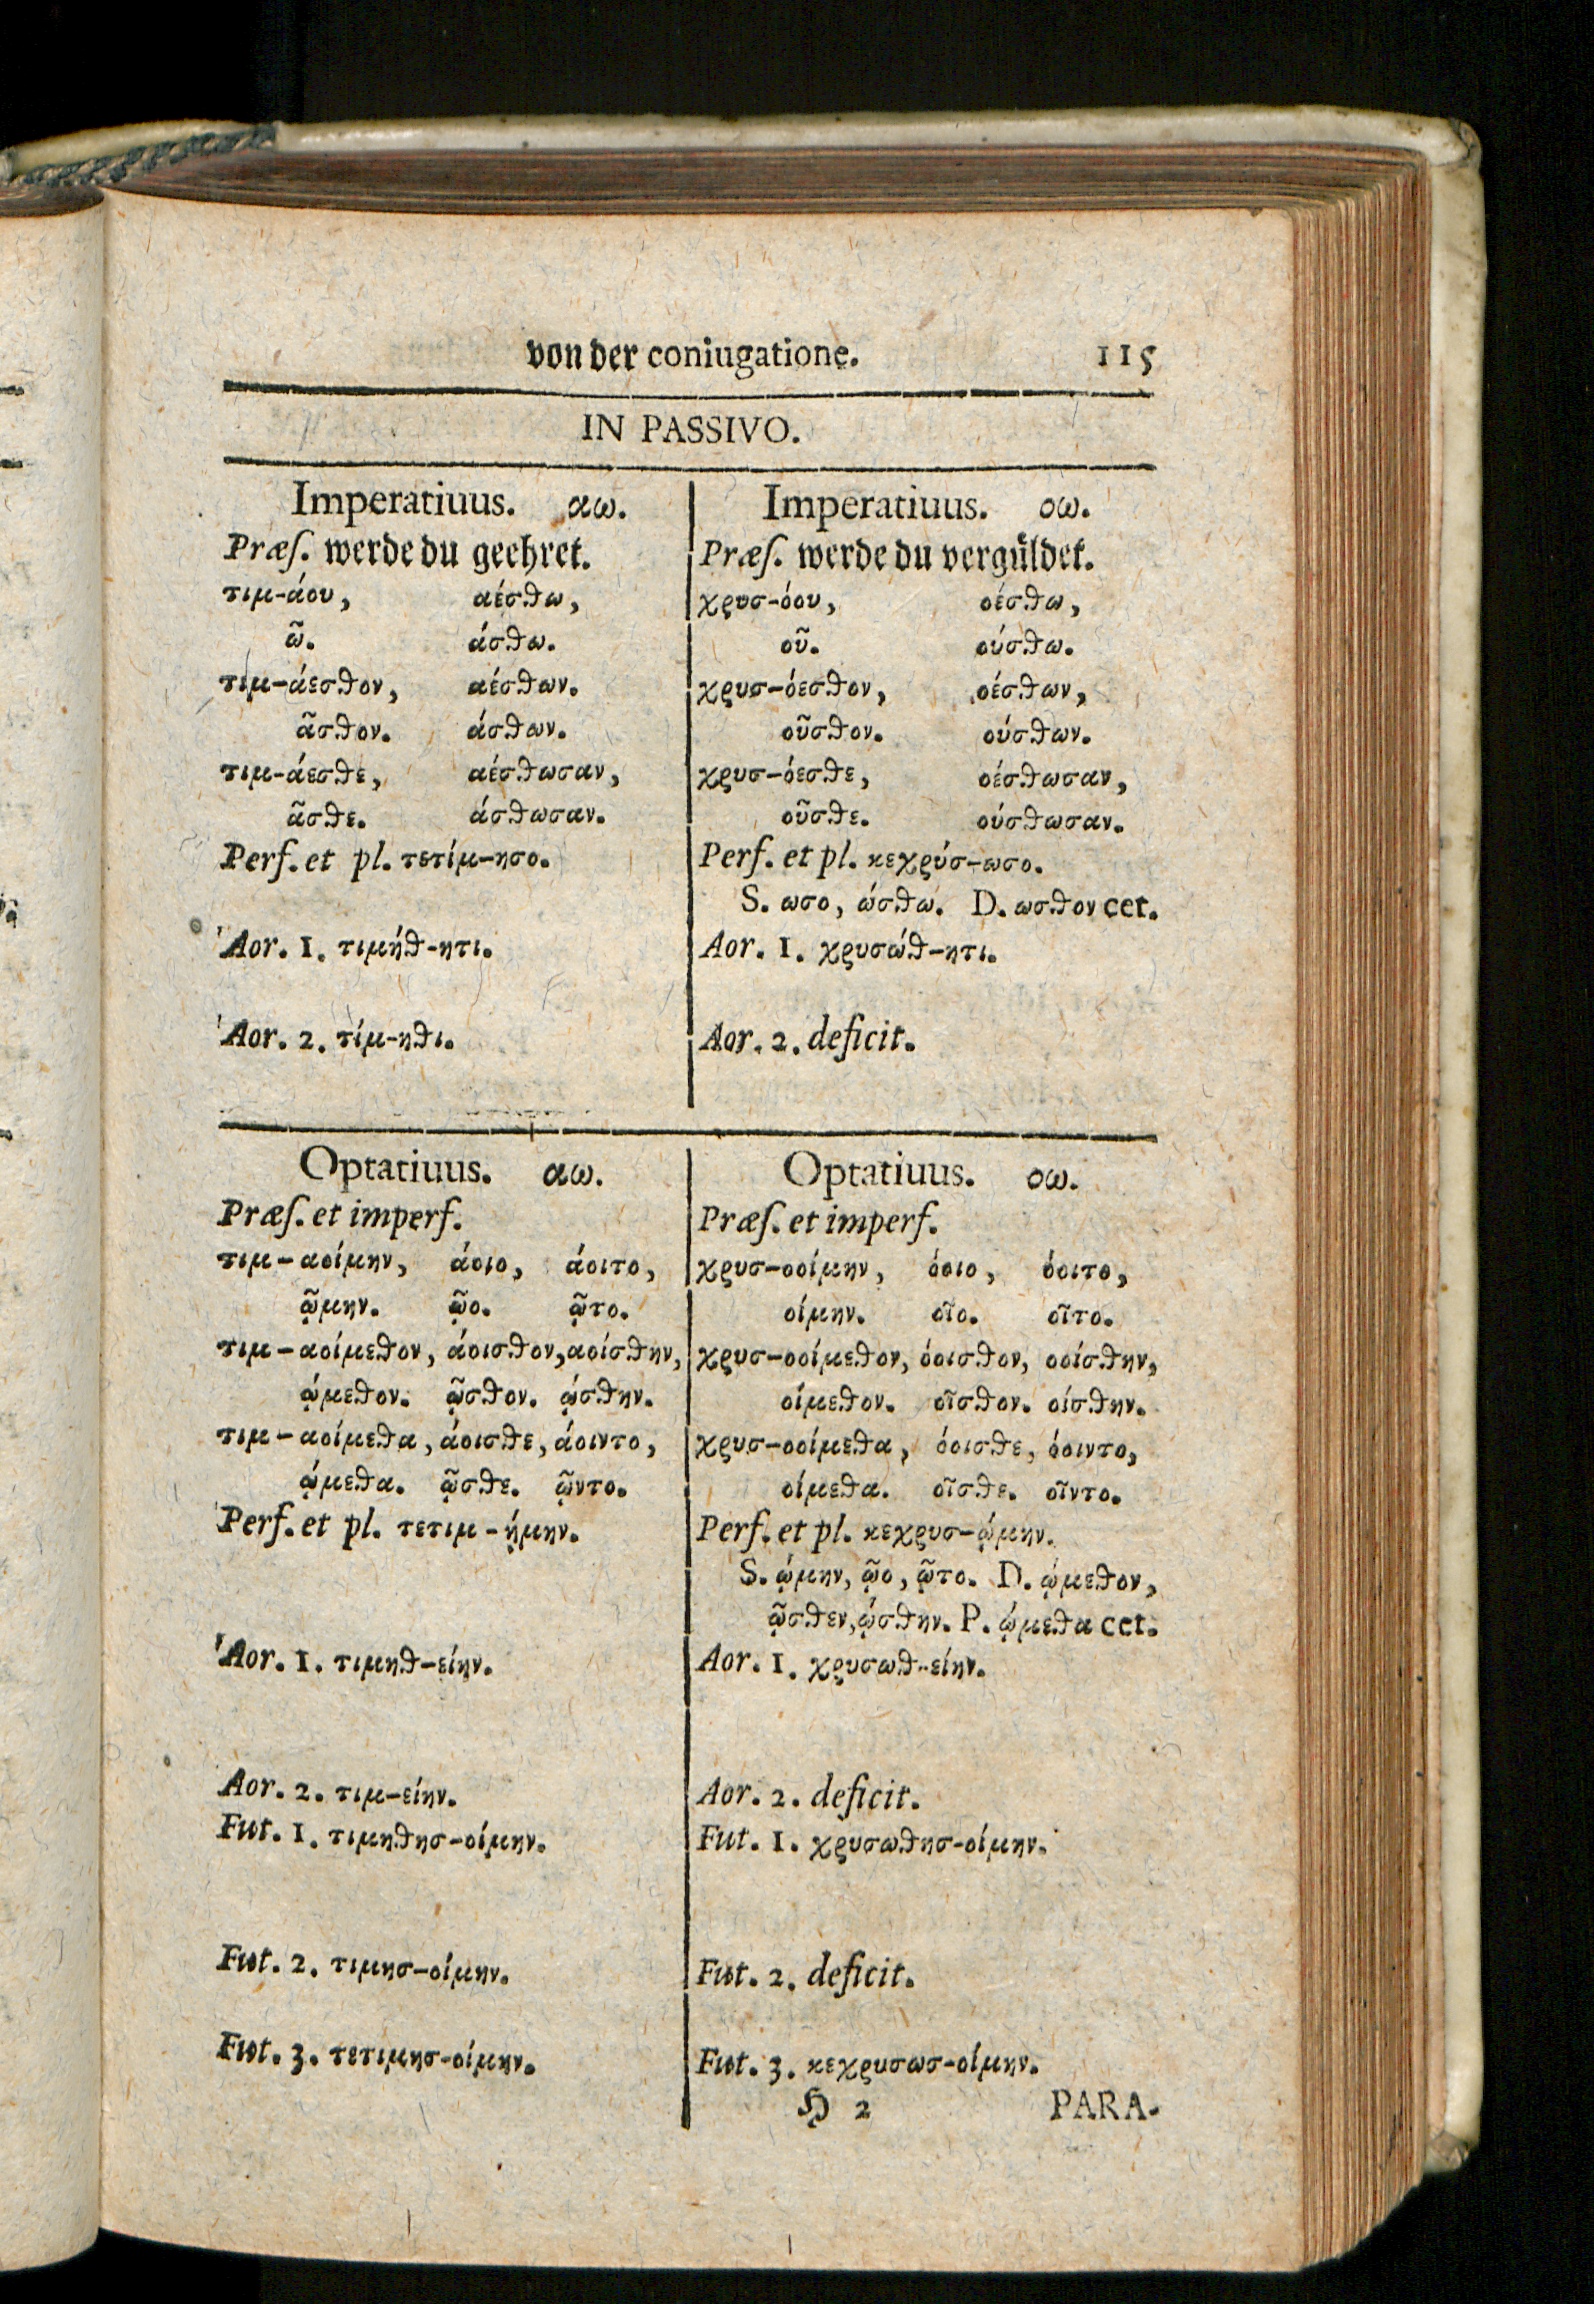 von der coniugatione. 115
IN PASSIVO.
Imperatiuus. αω.
Præſ. werde du geehret.
τιμ-άου, αέσθω,
ῶ. άσθω.
τιμ-άεσθον, αέσθων.
ᾶσθον. άσθων.
τιμ-άεσθε, αέσθωσαν,
ᾶσθε. άσθωσαν.
Perf. et pl. τετίμ-ησο.
Aor. 1. τιμήθ-ητι.
Aor. 2. τίμ-ηθι.
Imperatiuus. οω.
Præſ. werde du vergüldet.
χρυσ-όου, οέσθω,
οῦ. ούσθω.
χρυσ-όεσθον, οέσθων,
οῦσθον. ούσθων.
χρυσ-όεσθε, οέσθωσαν,
οῦσθε. ούσθωσαν.
Perf. et pl. κεχρύσ-ωσο.
S. ωσο, ώσθω. D. ωσθον cet.
Aor. 1. χρυσώθ-ητι.
Aor. 2. deficit.
Optatiuus. αω.
Præſ. et imperf.
τιμ-αοίμην, άοιο, άοιτο,
ῷμην. ῷο. ῷτο.
τιμ-αοίμεθον, άοισθον, αοίσθην,
ῴμεθον. ῷσθον. ῴσθην.
τιμ-αοίμεθα, άοισθε, άοιντο,
ῴμεθα. ῷσθε. ῷντο.
Perf. et pl. τετιμ-ῄμην.
Aor. 1. τιμηθ-είην.
Aor. 2. τιμ-είην.
Fut. 1. τιμηθησ-οίμην.
Fut. 2. τιμησ-οίμην.
Fut. 3. τετιμησ-οίμην.
Optatiuus. οω.
Præſ. et imperf.
χρυσ-οοίμην, όοιο, όοιτο,
οίμην. οῖο. οῖτο.
χρυσ-οοίμεθον, όοισθον, οοίσθην,
οίμεθον. οῖσθον. οίσθην.
χρυσ-οοίμεθα, όοισθε, όοιντο,
οίμεθα. οῖσθε. οῖντο.
Perf. et pl. κεχρυσ-ῴμην.
S. ῴμην, ῷο, ῷτο. D. ῴμεθον,
ῷσθεν, ῴσθην. P. ῴμεθα cet.
Aor. 1. χρυσωθ-είην.
Aor. 2. deficit.
Fut. 1. χρυσωθησ-οίμην.
Fut. 2. deficit.
Fut. 3. κεχρυσωσ-οίμην.
H 2 PARA-